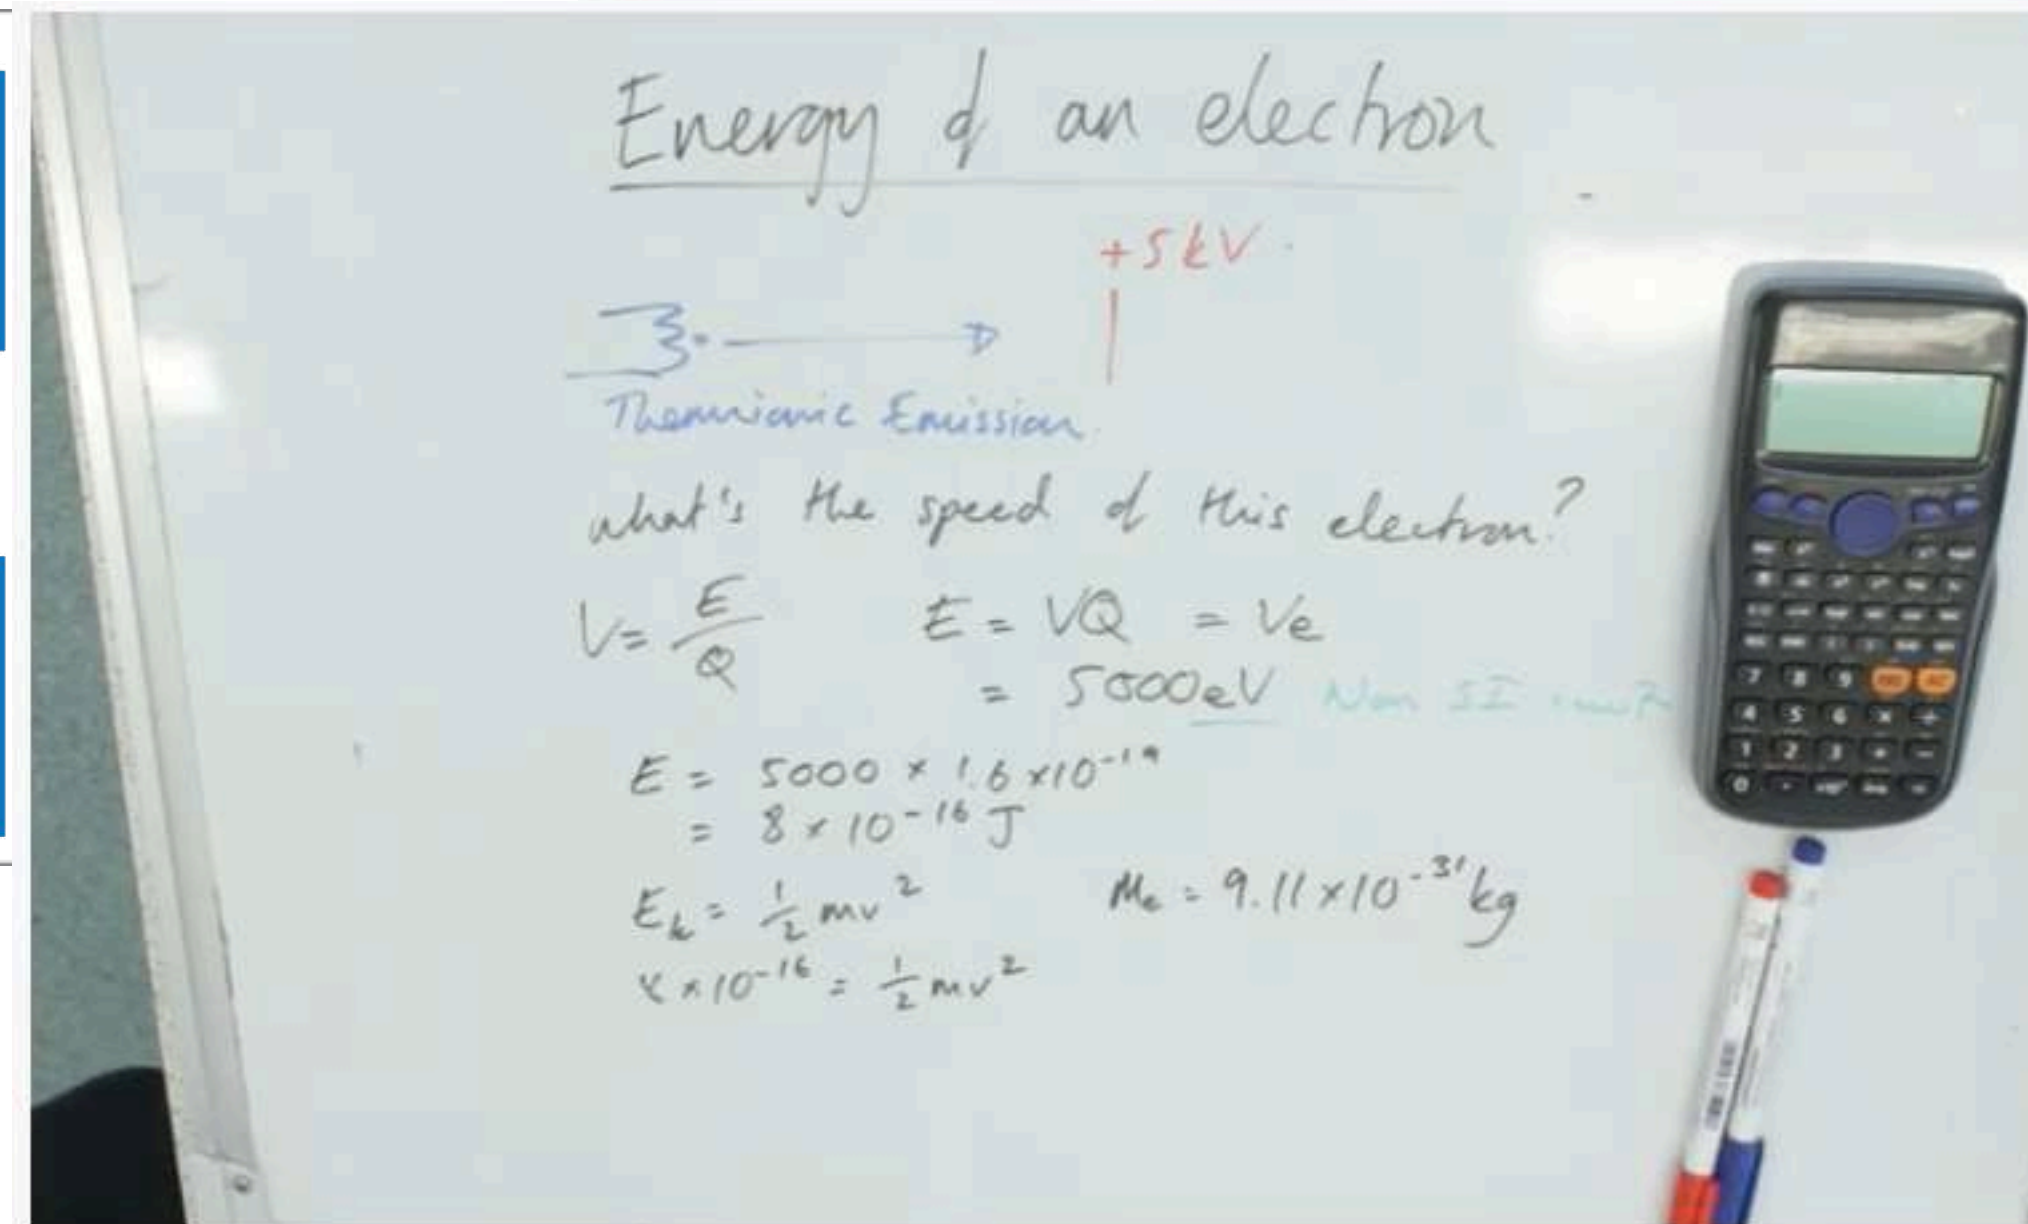 Energy of an electron
+5kV
Thermionic Emission
what's the speed of this electron?
V = E/Q E = VQ = Ve
= 5000eV Non SI
E = 5000 × 1.6 × 10⁻¹⁹
= 8 × 10⁻¹⁶ J
Eₖ = ½ mv² Mₑ = 9.11 × 10⁻³¹ kg
8 × 10⁻¹⁶ = ½ mv²
7 8 9
4 5 6 × ÷
1 2 3 + −
0 . =